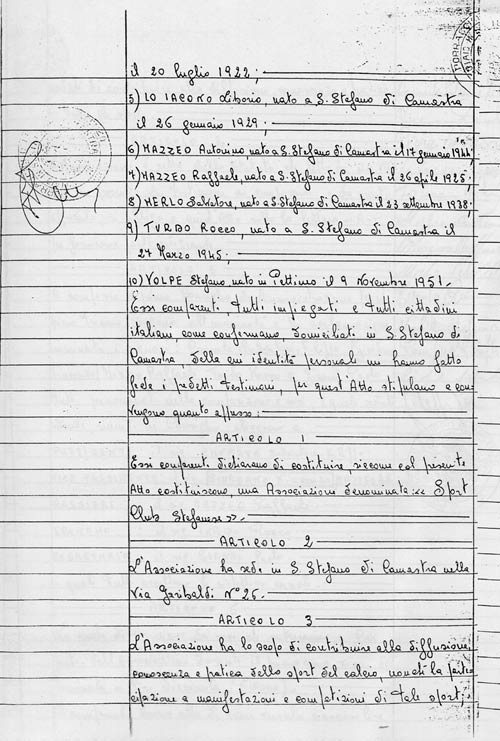 il 20 luglio 1922;
5) LO IACONO Liborio, nato a S. Stefano di Camastra
il 26 gennaio 1929;
6) MAZZEO Antonino, nato a S. Stefano di Camastra il 17 gennaio 1944;
7) MAZZEO Raffaele, nato a S. Stefano di Camastra il 26 aprile 1925;
8) MERLO Salvatore, nato a S. Stefano di Camastra il 23 settembre 1938;
9) TURBO Rocco, nato a S. Stefano di Camastra il
27 Marzo 1945;
10) VOLPE Stefano, nato in Pettineo il 9 Novembre 1951.
Essi comparenti, tutti impiegati e tutti cittadini
italiani, come confermano, domiciliati in S. Stefano di
Camastra, della cui identità personale mi hanno fatto
fede i predetti testimoni, per quest'Atto stipulano e con-
vengono quanto appresso:
ARTICOLO 1
Essi comparenti dichiarano di costituire, siccome col presente
Atto costituiscono, una Associazione denominata: << Sport
Club Stefanese >>.
ARTICOLO 2
L'Associazione ha sede in S. Stefano di Camastra nella
Via Garibaldi N° 26.
ARTICOLO 3
L'Associazione ha lo scopo di contribuire alla diffusione,
conoscenza e pratica dello sport del calcio, nonché la parte-
cipazione a manifestazioni e competizioni di tale sport;